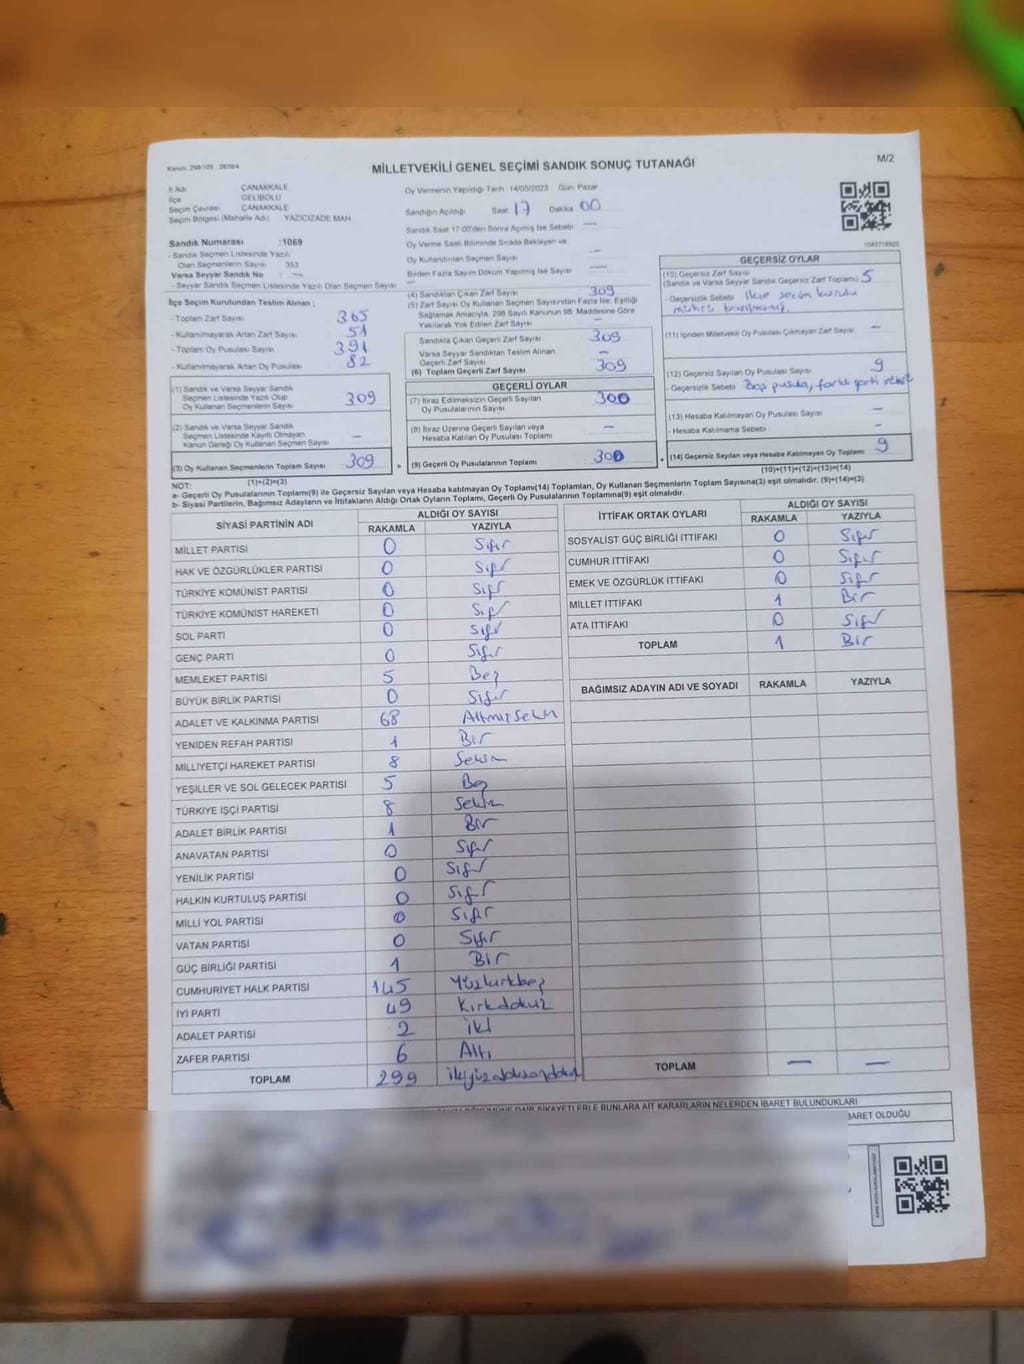 Kanun: 298/105 - 2839/4
MİLLETVEKİLİ GENEL SEÇİMİ SANDIK SONUÇ TUTANAĞI
M/2
İl Adı ÇANAKKALE
İlçe GELİBOLU
Seçim Çevresi ÇANAKKALE
Seçim Bölgesi (Mahalle Adı) YAZICIZADE MAH
Sandık Numarası :1069
- Sandık Seçmen Listesinde Yazılı
Olan Seçmenlerin Sayısı 353
Varsa Seyyar Sandık No : —
- Seyyar Sandık Seçmen Listesinde Yazılı Olan Seçmen Sayısı
İlçe Seçim Kurulundan Teslim Alınan :
- Toplam Zarf Sayısı 365
- Kullanılmayarak Artan Zarf Sayısı 51
- Toplam Oy Pusulası Sayısı 391
- Kullanılmayarak Artan Oy Pusulası 82
(1) Sandık ve Varsa Seyyar Sandık
Seçmen Listesinde Yazılı Olup
Oy Kullanan Seçmenlerin Sayısı 309
(2) Sandık ve Varsa Seyyar Sandık
Seçmen Listesinde Kayıtlı Olmayan
Kanun Gereği Oy Kullanan Seçmen Sayısı —
(3) Oy Kullanan Seçmenlerin Toplam Sayısı 309
Oy Vermenin Yapıldığı Tarih 14/05/2023 Gün Pazar
Sandığın Açıldığı Saat 17 Dakika 00
Sandık Saat 17:00'den Sonra Açılmış İse Sebebi —
Oy Verme Saati Bitiminde Sırada Bekleyen ve
Oy Kullandırılan Seçmen Sayısı —
Birden Fazla Sayım Döküm Yapılmış İse Sayısı —
(4) Sandıktan Çıkan Zarf Sayısı 309
(5) Zarf Sayısı Oy Kullanan Seçmen Sayısından Fazla İse, Eşitliği
Sağlamak Amacıyla, 298 Sayılı Kanunun 98. Maddesine Göre
Yakılarak Yok Edilen Zarf Sayısı —
Sandıkta Çıkan Geçerli Zarf Sayısı 309
Varsa Seyyar Sandıktan Teslim Alınan
Geçerli Zarf Sayısı —
(6) Toplam Geçerli Zarf Sayısı 309
GEÇERLİ OYLAR
(7) İtiraz Edilmeksizin Geçerli Sayılan
Oy Pusulalarının Sayısı 300
(8) İtiraz Üzerine Geçerli Sayılan veya
Hesaba Katılan Oy Pusulası Toplamı —
= (9) Geçerli Oy Pusulalarının Toplamı 300
1083718923
GEÇERSİZ OYLAR
(10) Geçersiz Zarf Sayısı
(Sandık ve Varsa Seyyar Sandık Geçersiz Zarf Toplamı) 5
- Geçersizlik Sebebi İlçe seçim kurulu
(11) İçinden Milletvekili Oy Pusulası Çıkmayan Zarf Sayısı —
(12) Geçersiz Sayılan Oy Pusulası Sayısı 9
- Geçersizlik Sebebi Boş pusula, farklı parti
(13) Hesaba Katılmayan Oy Pusulası Sayısı —
- Hesaba Katılmama Sebebi —
+ (14) Geçersiz Sayılan veya Hesaba Katılmayan Oy Toplamı 9
(1)+(2)=(3)
(10)+(11)+(12)+(13)=(14)
NOT:
a- Geçerli Oy Pusulalarının Toplamı(9) ile Geçersiz Sayılan veya Hesaba katılmayan Oy Toplamı(14) Toplamları, Oy Kullanan Seçmenlerin Toplam Sayısına(3) eşit olmalıdır. (9)+(14)=(3)
b- Siyasi Partilerin, Bağımsız Adayların ve İttifakların Aldığı Ortak Oyların Toplamı, Geçerli Oy Pusulalarının Toplamına(9) eşit olmalıdır.
SİYASİ PARTİNİN ADI
ALDIĞI OY SAYISI
RAKAMLA YAZIYLA
MİLLET PARTİSİ 0 Sıfır
HAK VE ÖZGÜRLÜKLER PARTİSİ 0 Sıfır
TÜRKİYE KOMÜNİST PARTİSİ 0 Sıfır
TÜRKİYE KOMÜNİST HAREKETİ 0 Sıfır
SOL PARTİ 0 Sıfır
GENÇ PARTİ 0 Sıfır
MEMLEKET PARTİSİ 5 Beş
BÜYÜK BİRLİK PARTİSİ 0 Sıfır
ADALET VE KALKINMA PARTİSİ 68 Altmışsekiz
YENİDEN REFAH PARTİSİ 1 Bir
MİLLİYETÇİ HAREKET PARTİSİ 8 Sekiz
YEŞİLLER VE SOL GELECEK PARTİSİ 5 Beş
TÜRKİYE İŞÇİ PARTİSİ 8 Sekiz
ADALET BİRLİK PARTİSİ 1 Bir
ANAVATAN PARTİSİ 0 Sıfır
YENİLİK PARTİSİ 0 Sıfır
HALKIN KURTULUŞ PARTİSİ 0 Sıfır
MİLLİ YOL PARTİSİ 0 Sıfır
VATAN PARTİSİ 0 Sıfır
GÜÇ BİRLİĞİ PARTİSİ 1 Bir
CUMHURİYET HALK PARTİSİ 145 Yüzkırkbeş
İYİ PARTİ 49 Kırkdokuz
ADALET PARTİSİ 2 İki
ZAFER PARTİSİ 6 Altı
TOPLAM 299 ikiyüzdoksandokuz
İTTİFAK ORTAK OYLARI
ALDIĞI OY SAYISI
RAKAMLA YAZIYLA
SOSYALİST GÜÇ BİRLİĞİ İTTİFAKI 0 Sıfır
CUMHUR İTTİFAKI 0 Sıfır
EMEK VE ÖZGÜRLÜK İTTİFAKI 0 Sıfır
MİLLET İTTİFAKI 1 Bir
ATA İTTİFAKI 0 Sıfır
TOPLAM 1 Bir
BAĞIMSIZ ADAYIN ADI VE SOYADI RAKAMLA YAZIYLA
TOPLAM — —
DAİR ŞİKAYETLERLE BUNLARA AİT KARARLARIN NELERDEN İBARET BULUNDUKLARI
İBARET OLDUĞU